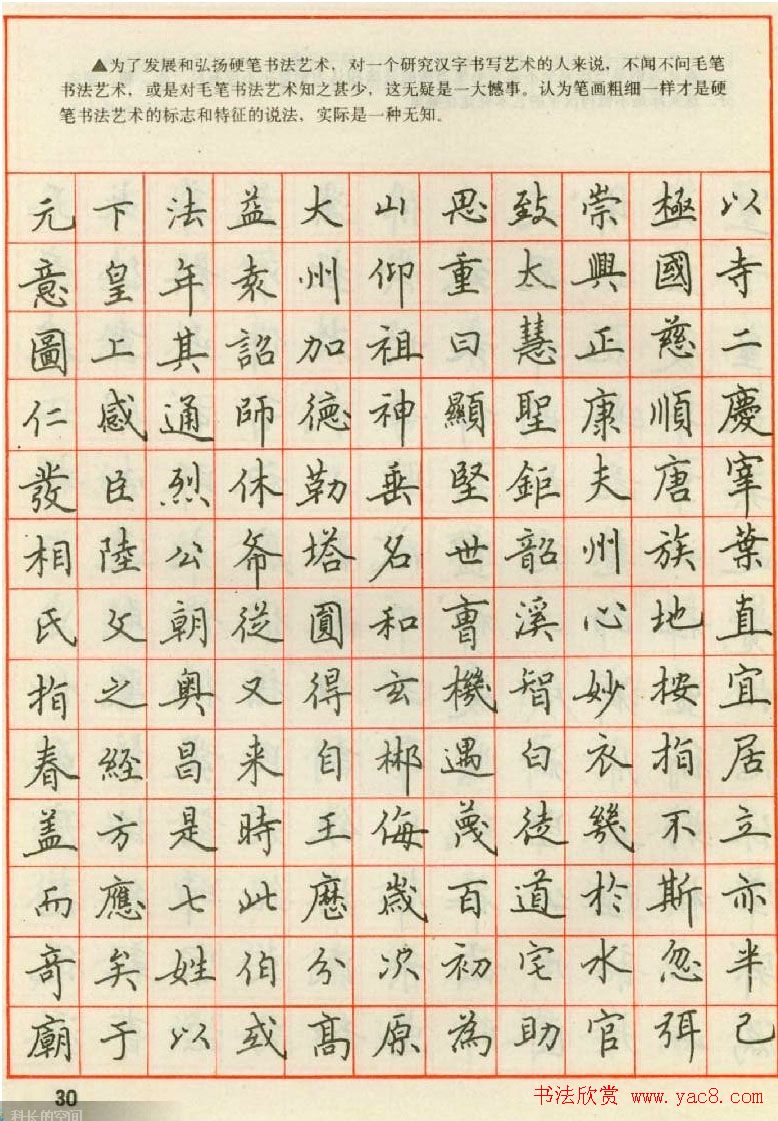 ▲为了发展和弘扬硬笔书法艺术，对一个研究汉字书写艺术的人来说，不闻不问毛笔
书法艺术，或是对毛笔书法艺术知之甚少，这无疑是一大憾事。认为笔画粗细一样才是硬
笔书法艺术的标志和特征的说法，实际是一种无知。
以寺二慶宰葉直宜居立亦半己
極國慈順唐族地按指不斯忽弭
崇興正康夫州心妙衣幾於水官
致太慧聖鉅韶溪智白徒道宅助
思重曰顯堅世曹機遇蔑百初為
山仰祖神垂名和玄郴侮歲次原
大州加德勒塔圓得自王歷分高
益袁詔師休從又来時此伯或
法年其通烈公朝奥昌是七姓以
下皇上感臣陸文之經方應矣于
元意圖仁發相氏指春盖而奇廟
30
书法欣赏 www.yac8.com
科长的空间